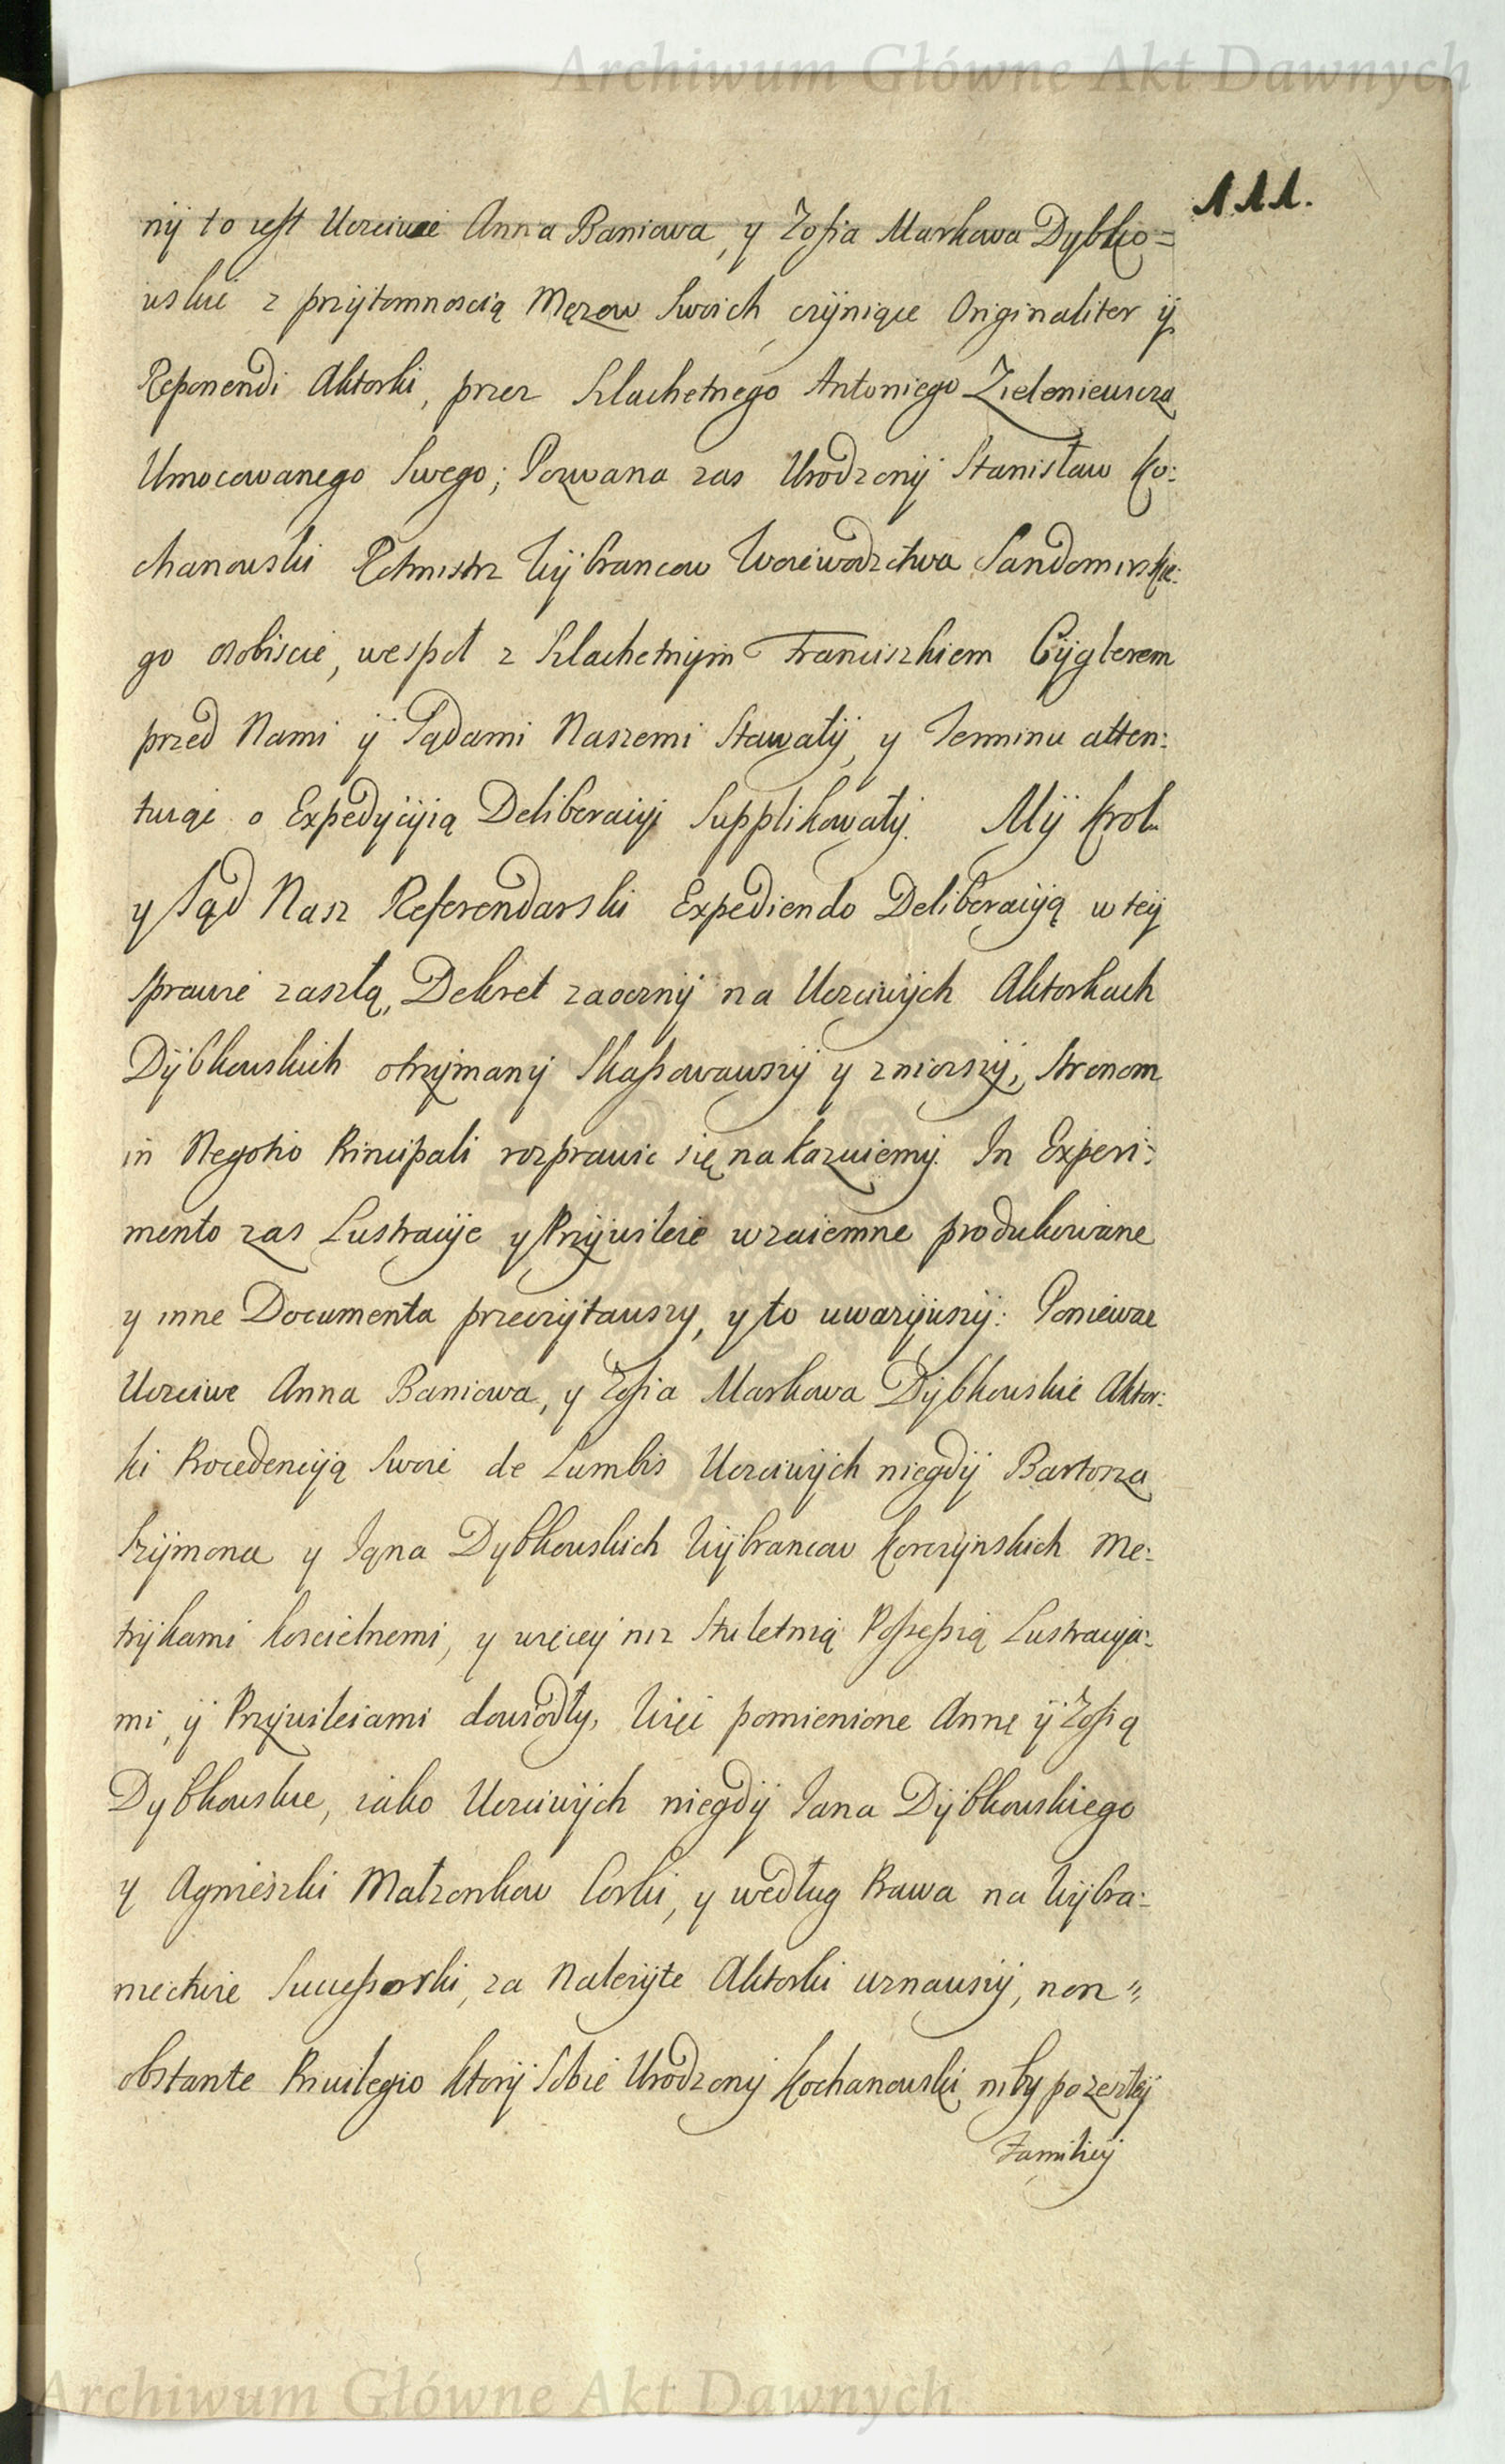 Archiwum Główne Akt Dawnych
111.
nÿ to iest Uczciwe Anna Baniowa, y Zofia Markowa Dybko=
wskie z przÿtomnoscią Męzow Swoich czÿniące Originaliter ÿ
Reponendi Aktorki, przez Szlachetnego Antoniego Zieleniewicza
Umocowanego Swego; Pozwana zas Urodzonÿ Stanisław Ko:
chanowski Rotmistrz Wÿbrancow Woiewodztwa Sandomirskie:
go osobiscie, wespoł z Szlachetnÿm Franciszkiem Cÿglerem
przed Nami ÿ Sądami Naszemi Stawałÿ, y Terminu atten:
tuiąc o Expedÿcÿią Deliberacÿi Supplikowałÿ. Mÿ Krol
y Sąd Nasz Referendarski Expediendo Deliberacÿą w teÿ
Sprawie zaszłą, Dekret zaocznÿ na Uczciwÿch Aktorkach
Dÿbkowskich otrzÿmanÿ Skassowawszÿ y zniosszÿ, Stronom
in Negotio Principali rozprawic się nakazuiemÿ. In Experi:
mento zas Lustracÿe y Przÿwileie wzaiemne produkowane
y inne Documenta przeczÿtawszy, y to uwazÿwszÿ: Poniewaz
Uczciwe Anna Baniowa, y Zofia Markowa Dÿbkowskie Aktor:
ki Procedencÿą Swoię de Lumbis Uczciwÿch niegdÿ Bartosza
Szÿmona y Jana Dybkowskich Wÿbrancow Korczÿnskich Me:
trÿkami koscielnemi, y więcey niz Stuletnią Possessią Lustracÿa:
mi, ÿ Przÿwileiami dowiodłÿ, Więc pomienione Annę ÿ Zofią
Dybkowskie, iako Uczciwÿch niegdÿ Jana Dÿbkowskiego
y Agnieszki Małzonkow Corki, y według Prawa na Wÿbra:
niectwie Successorki, za Nalezÿte Aktorki uznawszÿ, non=
obstante Privilegio ktorÿ Sobie Urodzonÿ Kochanowski niby po zeszłeÿ
Familiÿ
Archiwum Główne Akt Dawnych